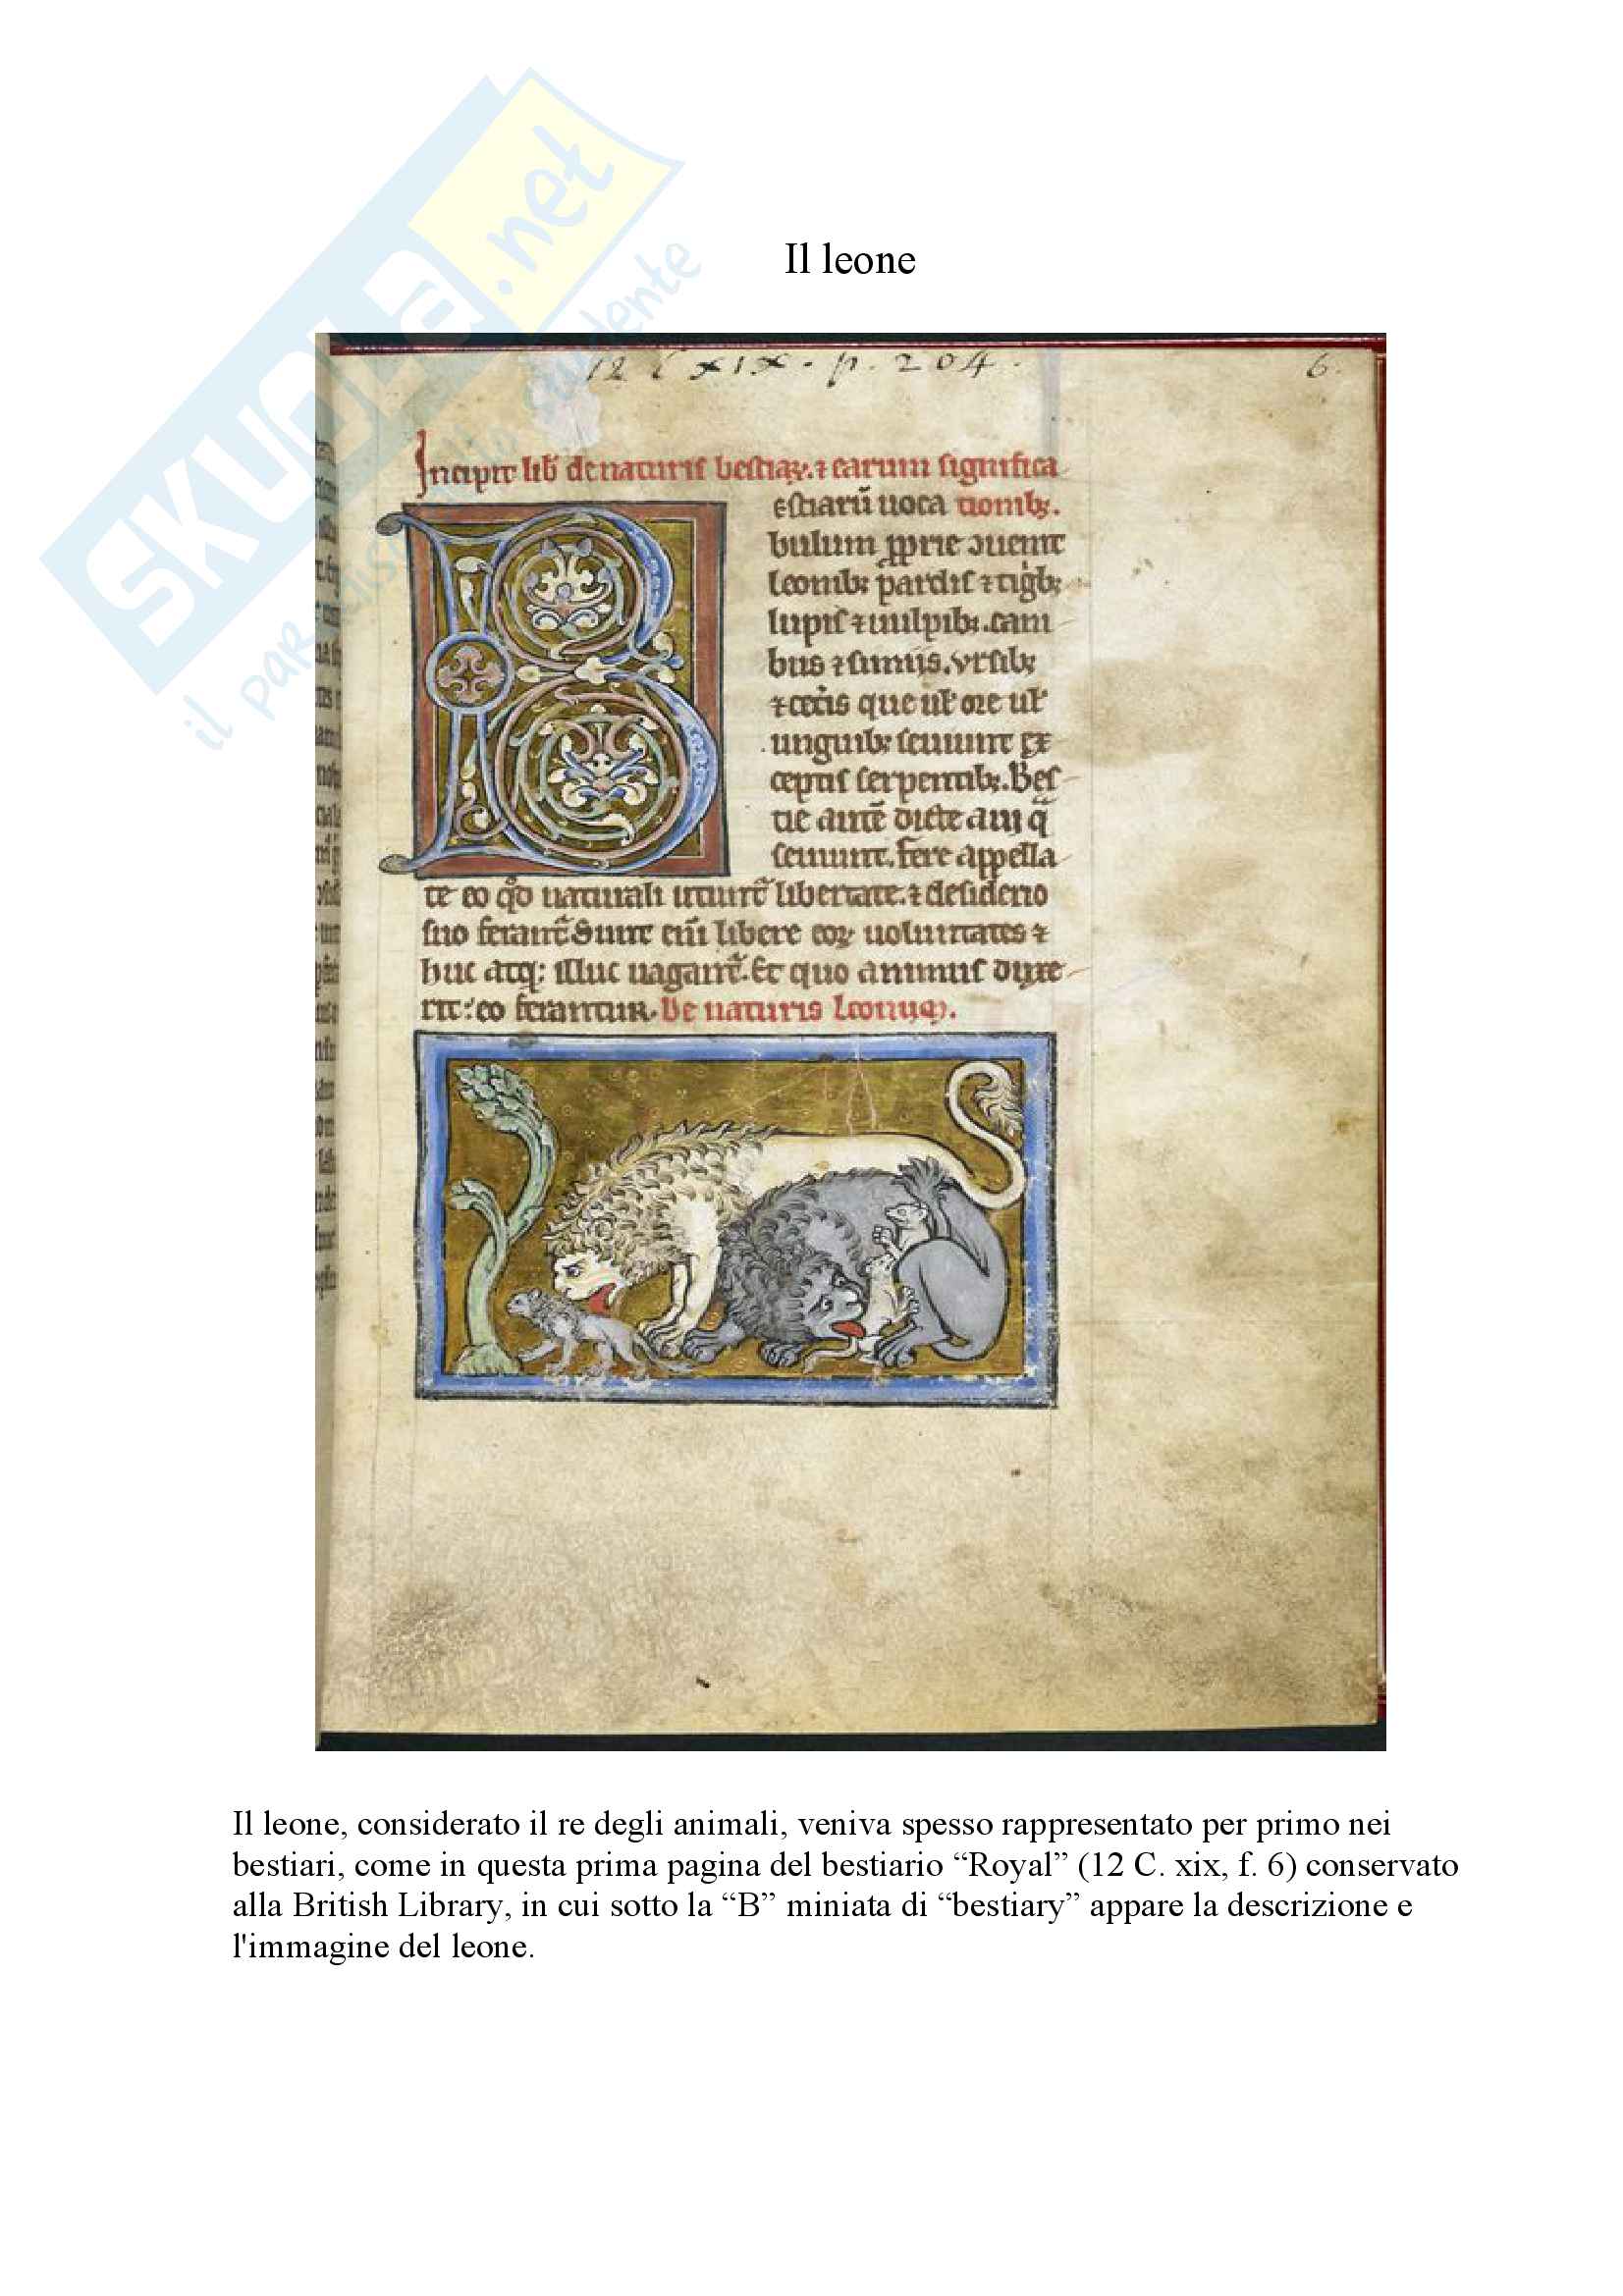 SKUOLA.net
il paradiso dello studente
Il leone
12 C xix. p. 204.
6.
Incipit lib̃ de naturis bestiaꝝ. ⁊ earum significa
estiarũ uoca tionibꝫ.
bulum ꝓprie ↄuenit
leonibꝫ pardis ⁊ tigbꝫ
lupis ⁊ uulpibꝫ. cani
bus ⁊ simiis. vrsibꝫ
⁊ cet̃is que uł ore uł
unguibꝫ seuiunt ex
ceptis serpentibꝫ. Bes
tie autẽ dicte a ui q̃
seuiunt. Fere appella
te eo qͦd naturali utunt̃ libertate. ⁊ desiderio
suo ferant̃. Sunt eni᷑ libere eoꝝ uoluntates ⁊
huc atqꝫ illuc uagant̃. Et quo animus duxe
rit: eo feruntur. De naturis leonum.
Il leone, considerato il re degli animali, veniva spesso rappresentato per primo nei
bestiari, come in questa prima pagina del bestiario “Royal” (12 C. xix, f. 6) conservato
alla British Library, in cui sotto la “B” miniata di “bestiary” appare la descrizione e
l'immagine del leone.